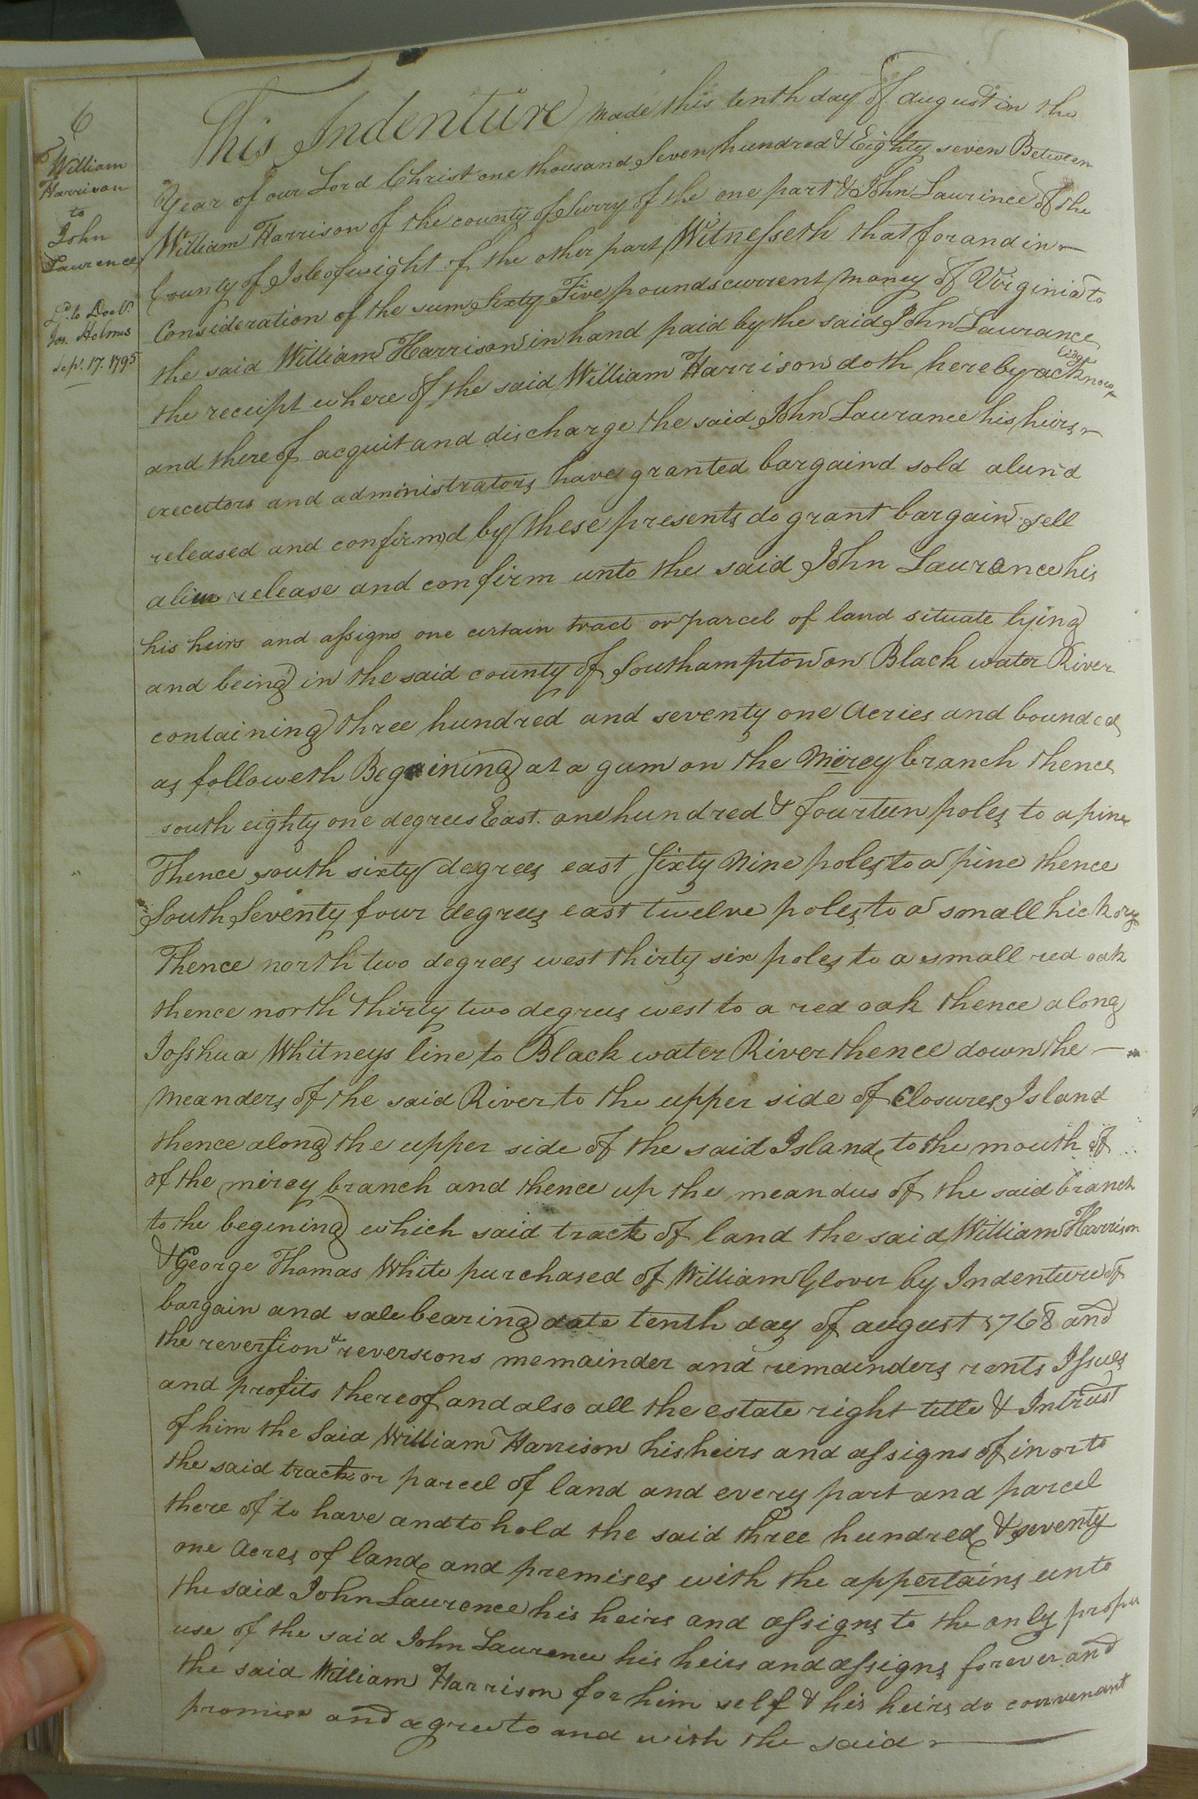 6
William
Harrison
to
John
Laurence
Dd. to Doct.
Jos. Holmes
Sept. 17. 1795
This Indenture made this tenth day of august in the
Year of our Lord Christ one thousand Seven hundred & Eighty seven Between
William Harrison of the county of Surry of the one part & John Laurince of the
County of Isle of wight of the other part Witnesseth that for and in
Consideration of the sum Sixty Five pounds current money of Virginia to
the said William Harrison in hand paid by the said John Laurance
the receipt where of the said William Harrison doth hereby acknow
ledg
and there of acquit and discharge the said John Laurance his heirs
executors and administrators have granted bargaind sold aliend
released and confirmd by these presents do grant bargain sell
alien release and confirm unto the said John Laurance his
his heirs and assigns one certain tract or parcel of land situate lying
and being in the said county of Southampton on Black water River
containing three hundred and seventy one Acries and bounded
as followeth Begining at a gum on the Mirey branch thence
south eighty one degrees East. one hundred & fourteen poles to a pine
Thence south sixty degrees east Sixty Nine poles to a pine thence
South Seventy four degrees east twelve poles to a small hickory
Thence north two degrees west thirty six poles to a small red oak
thence north thirty two degrees west to a red oak thence along
Josshua Whitneys line to Black water River thence down the
meanders of the said River to the upper side of Closures Island
thence along the upper side of the said Island to the mouth of
of the mirey branch and thence up the meandus of the said branch
to the begening which said tract of land the said William Harrison
& George Thomas White purchased of William Glover by Indenture of
bargain and sale bearing date tenth day of august 1768 and
the reversion & reversions memainder and remainders rents Issues
and profits thereof and also all the estate right title & Intrust
of him the Said William Harrison his heirs and assigns of in or to
the said tract or parcel of land and every part and parcel
there of to have and to hold the said three hundred & seventy
one Acres of land and premises with the appertains unto
the said John Laurence his heirs and assigns to the only proper
use of the said John Laurence his heirs and assigns forever and
the said William Harrison for him self & his heirs do convenant
promise and agree to and with the said